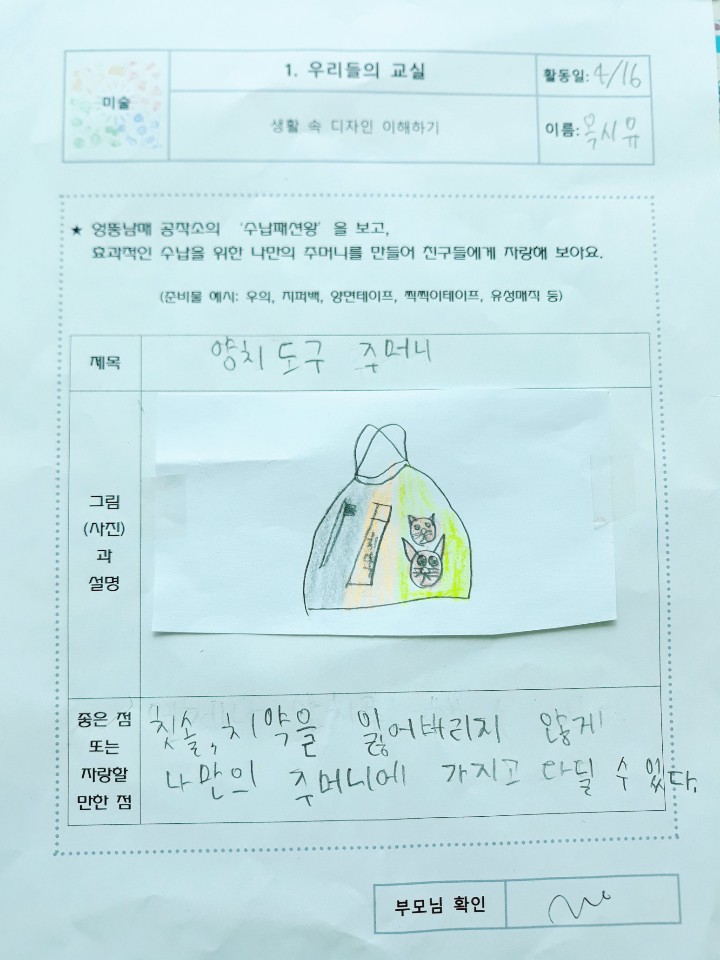 미술
1. 우리들의 교실
활동일: 4/16
생활 속 디자인 이해하기
이름: 옥시유
★ 엉뚱남매 공작소의 '수납패션왕' 을 보고,
효과적인 수납을 위한 나만의 주머니를 만들어 친구들에게 자랑해 보아요.
(준비물 예시: 우의, 지퍼백, 양면테이프, 찍찍이테이프, 유성매직 등)
제목
양치 도구 주머니
그림
(사진)
과
설명
좋은 점
또는
자랑할
만한 점
칫솔, 치약을 잃어버리지 않게
나만의 주머니에 가지고 다닐 수 있다.
부모님 확인